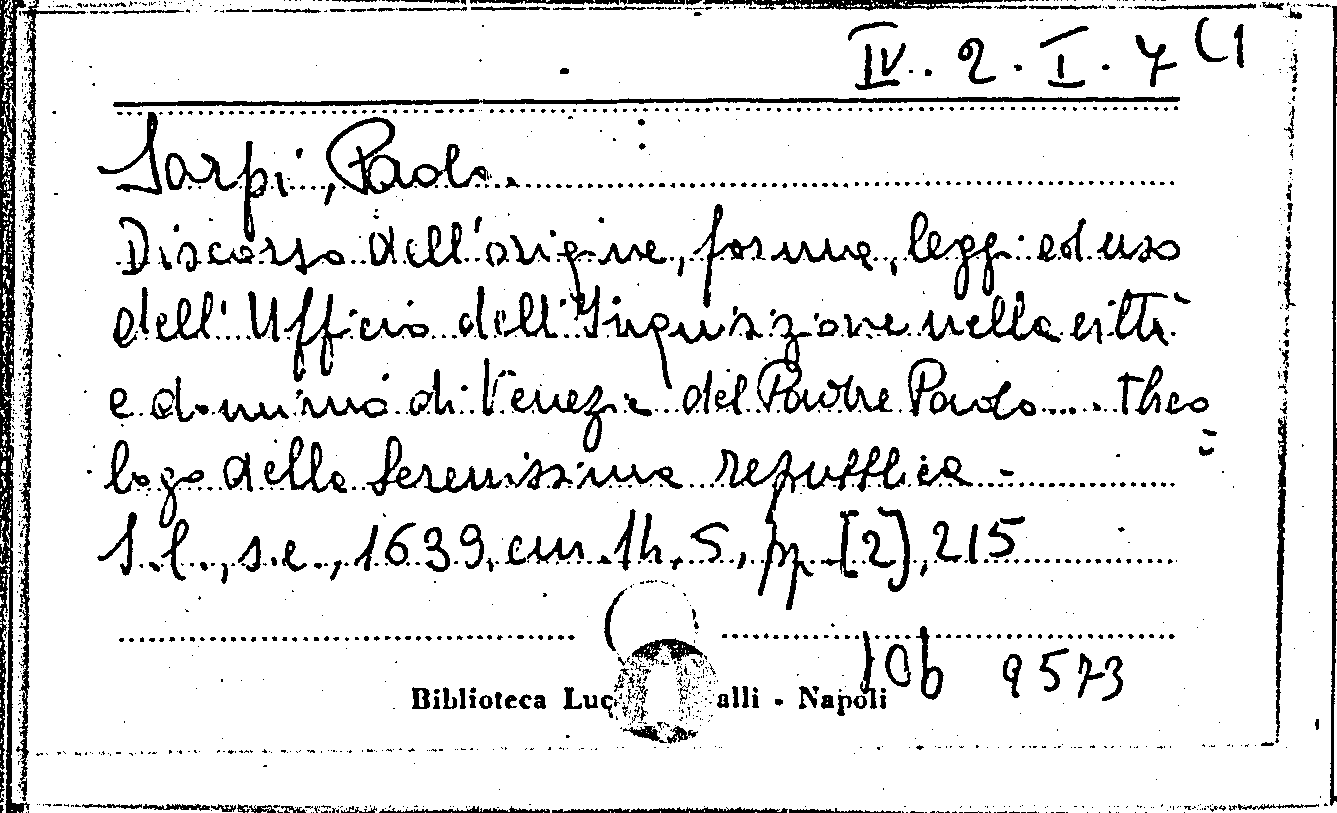 IV. 2. I. 7 (1
Sarpi, Paolo.
Discorso dell'origine, forma, leggi ed uso
dell'Ufficio dell'Inquisizione nella città
e dominio di Venezia del Padre Paolo.... theo
=
logo della Serenissima repubblica -
S.l., s.e., 1639, cm. 1h. 5, pp. [2], 215
Biblioteca Luc alli - Napoli
10b 9573